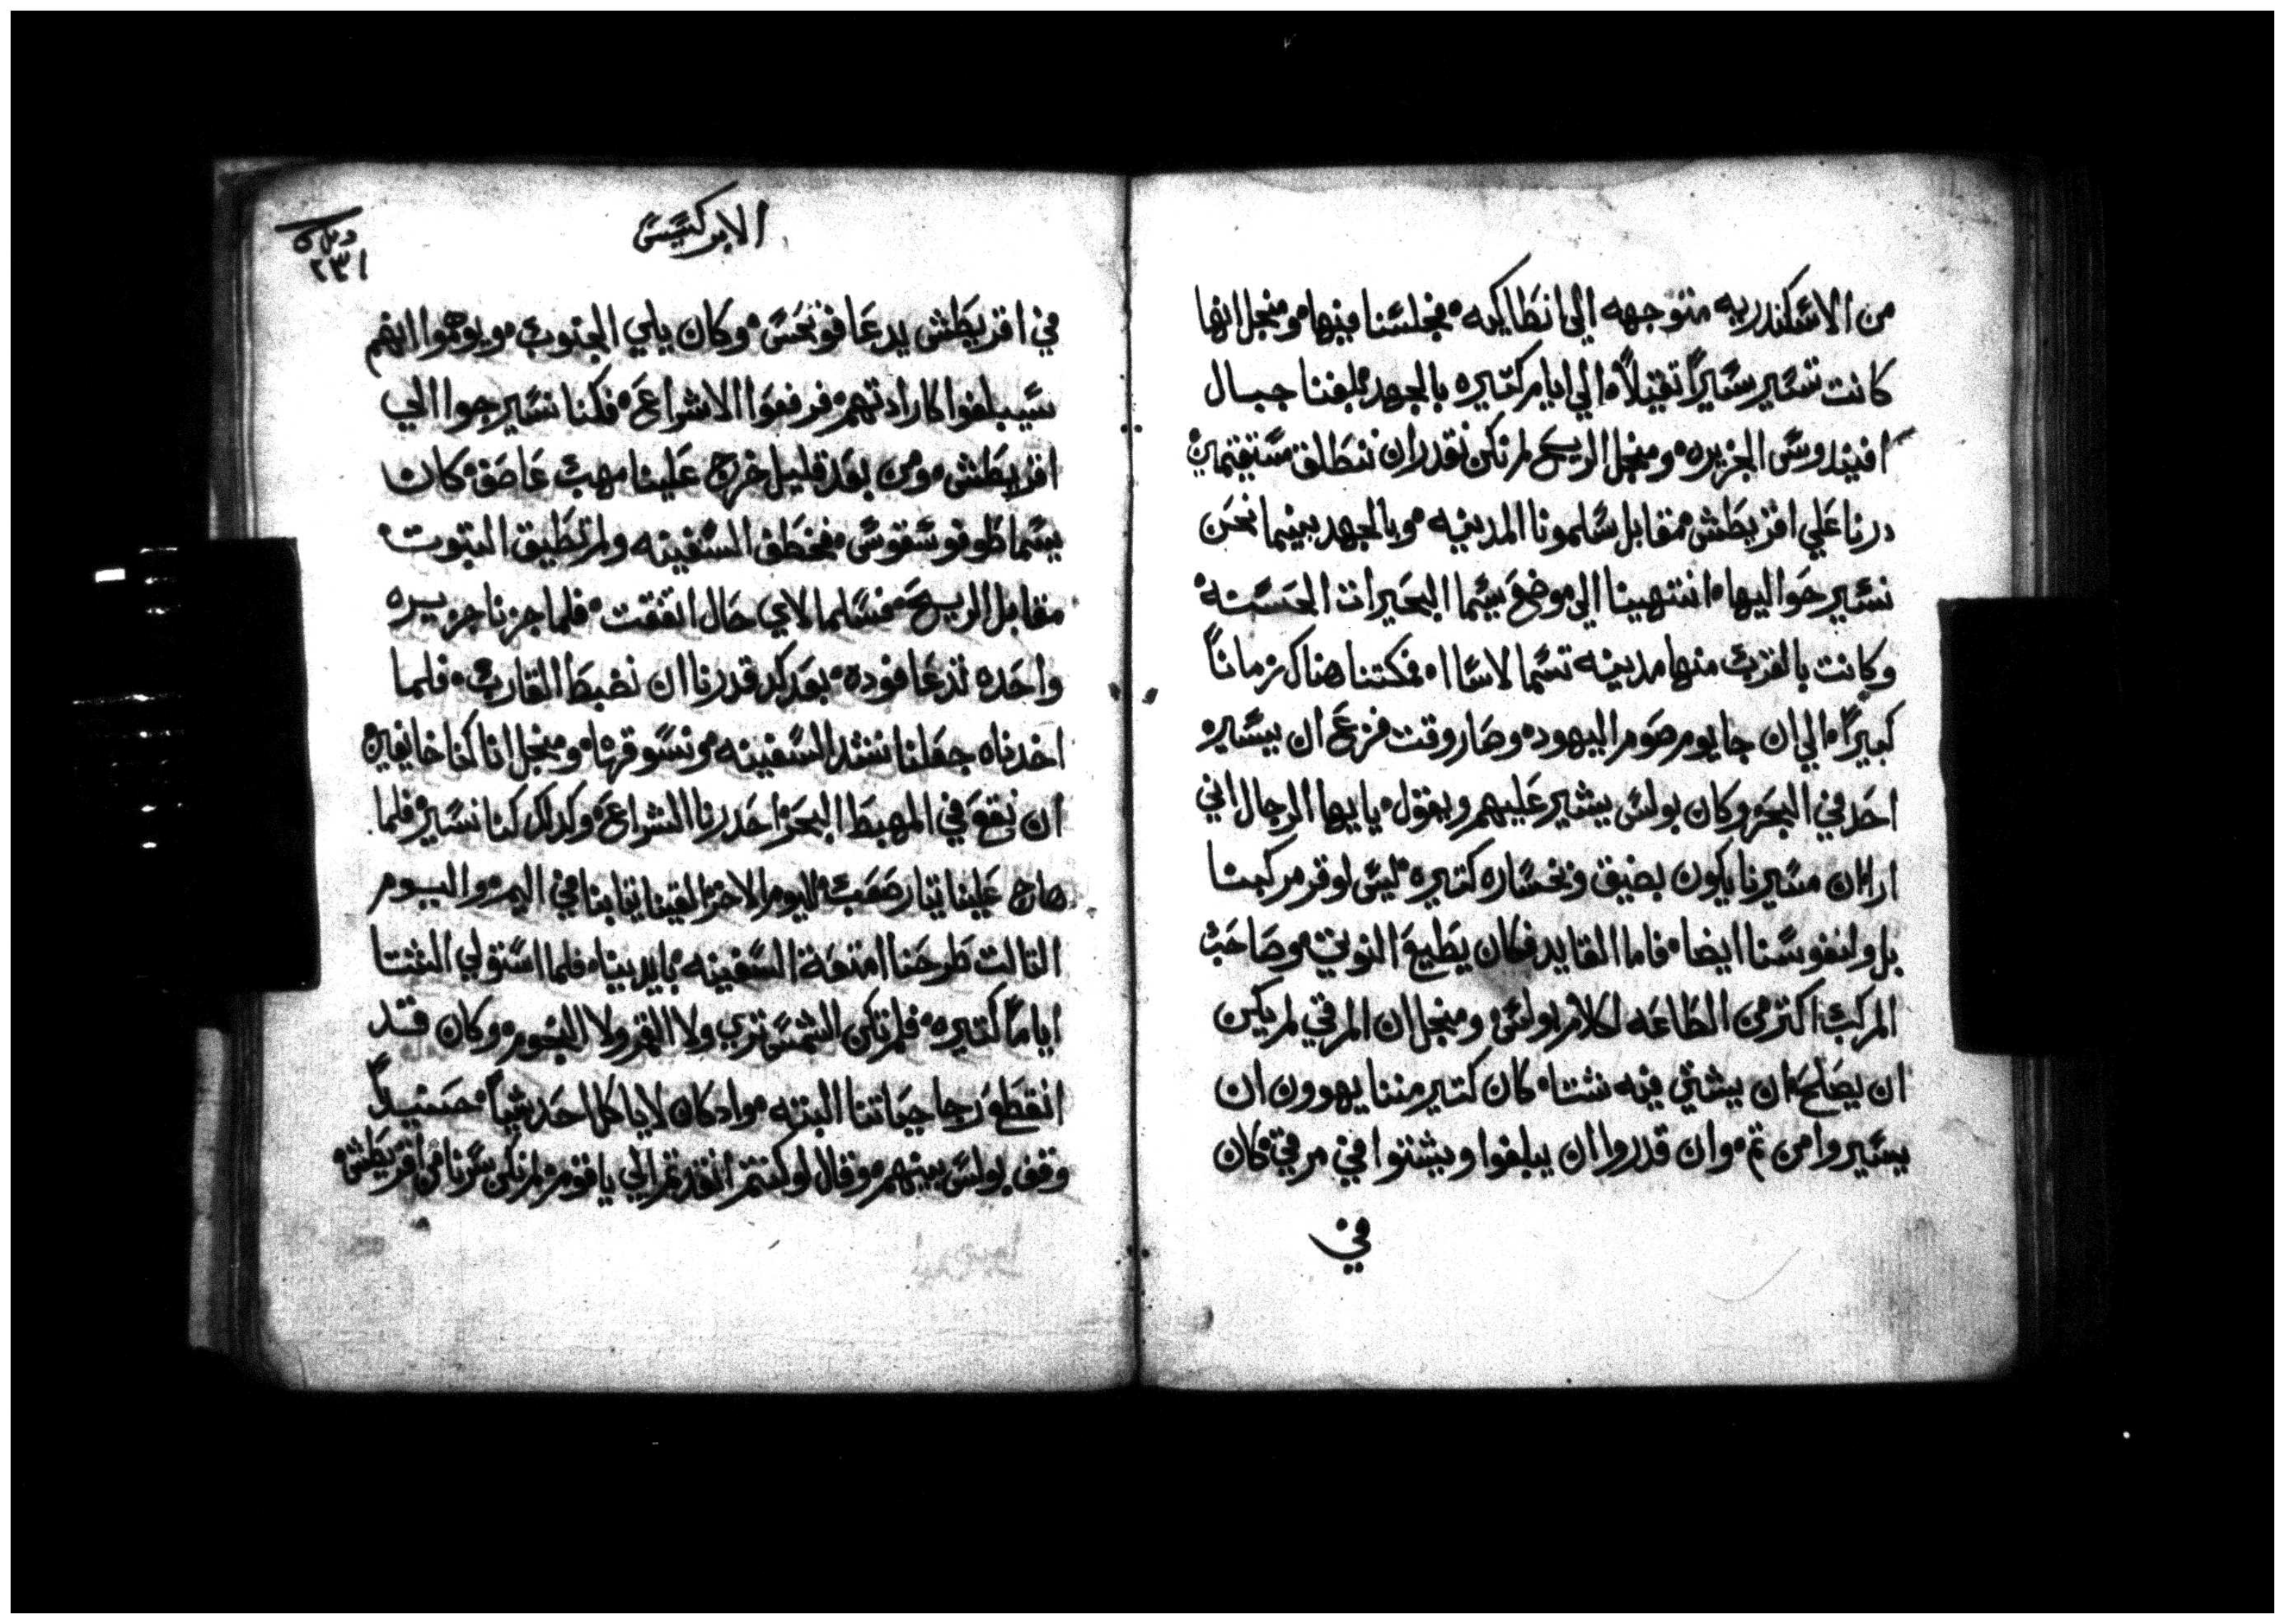 من الاسكندريه متوجهه الي انطاكيه فجلسنا فيها ومنجل انها
كانت تسير سيراً تقيلاً الي ايام كتيره بالجهد بلغنا جبال
افنيدوس الجزيره ومنجل الريح لم نكن نقدر ان ننطلق مستقيمين
درنا علي اقريطش مقابل سلمونا المدينه وبالجهد بينما نحن
نسير حواليها انتهينا الي موضع يسما البحيرات الحسنه
وكانت بالقرب منها مدينه تسما لاساا فمكتنا هناك زماناً
كبيراً الي ان جا يوم صوم اليهود وصار وقت فزع ان يسير
احد في البحر وكان بولس يشير عليهم ويقول يا ايها الرجال اني
ارا ان مسيرنا يكون بضيق وخساره كتيره ليس لوقر مركبنا
بل ولنفوسنا ايضا فاما القايد فكان يطيع النوتي وصاحب
المركب اكتر من الطاعه لكلام بولس ومنجل ان المرقي لم يكن
ان يصلح ان يشتي فيه شتا كان كتير مننا يهوون ان
يسيروا من تم وان قدروا ان يبلغوا ويشتوا في مرقي كان
في
الابركسيس
٢٣١
في اقريطش يدعا فونحس وكان يلي الجنوب ويوهموا انهم
سيبلغوا كارادتهم فرفعوا الاشراع فكنا نسير حوا الي
اقريطش ومن بعد قليل خرج علينا مهب عاصف كان
يسما طوفوسقوس فخطف السفينه ولم تطيق التبوت
مقابل الريح فسلما لاي حال اتفقت فلما جزنا جزيره
واحده تدعا فوده بعد كد قدرنا ان نضبط القارب فلما
اخدناه جعلنا نشد السفينه ونسوقها ومنجل انا كنا خايفين
ان نقع في المهبط البحر احدرنا الشراع وكدلك كنا نسير فلما
هاج علينا تيار صعب اليوم الاخر القينا تيابنا في اليم واليوم
التالت طرحنا امتعة السفينه بايدينا فلما استولي الشتا
اياماً كتيره فلم تكن الشمس تري ولا القمر ولا النجوم وكان قد
انقطع رجا حياتنا البته واد كان لا ياكل احد شياً حينيدٍ
وقف بولس بينهم وقال لو كنتم انقدتم الي يا قوم لم نكن سرنا من اقريطش